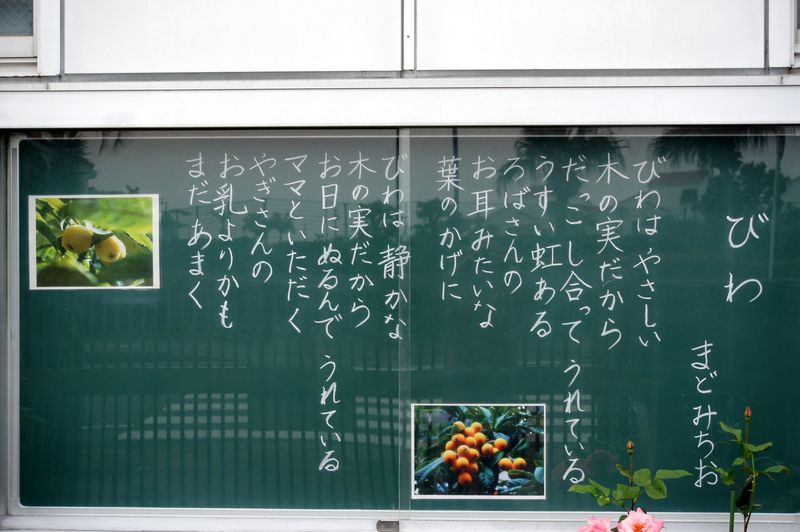 びわ
まどみちお
びわは やさしい
木の実だから
だっこし合って うれている
うすい虹ある
ろばさんの
お耳みたいな
葉のかげに
びわは 静かな
木の実だから
お日にぬるんで うれている
ママといただく
やぎさんの
お乳よりかも
まだあまく